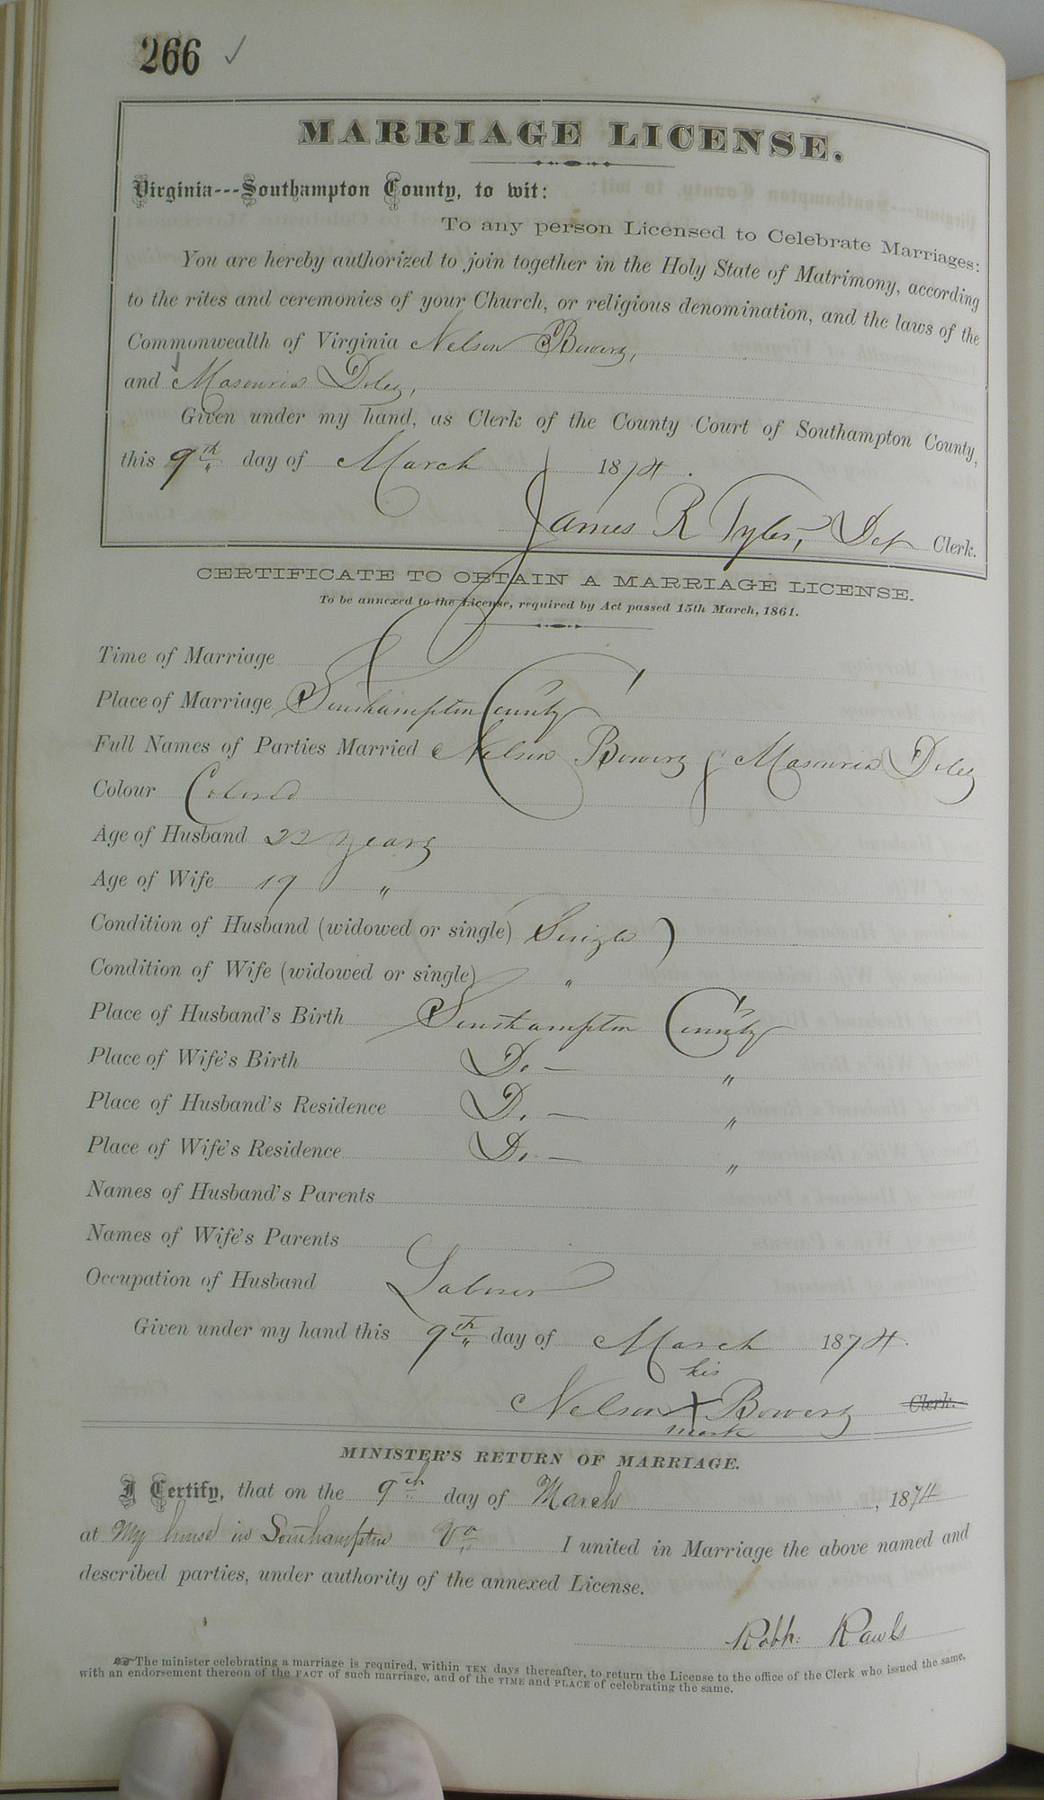 266
MARRIAGE LICENSE.
Virginia---Southampton County, to wit:
To any person Licensed to Celebrate Marriages:
You are hereby authorized to join together in the Holy State of Matrimony, according
to the rites and ceremonies of your Church, or religious denomination, and the laws of the
Commonwealth of Virginia Nelson Bowers,
and Masouria Doles,
Given under my hand, as Clerk of the County Court of Southampton County,
this 9th day of March 1874.
James R Tyler, Dep Clerk.
CERTIFICATE TO OBTAIN A MARRIAGE LICENSE.
To be annexed to the License, required by Act passed 15th March, 1861.
Time of Marriage
Place of Marriage Southampton County
Full Names of Parties Married Nelson Bowers & Masouria Doles
Colour Colored
Age of Husband 22 years
Age of Wife 19 "
Condition of Husband (widowed or single) Single
Condition of Wife (widowed or single) "
Place of Husband's Birth Southampton County
Place of Wife's Birth Do — "
Place of Husband's Residence Do — "
Place of Wife's Residence Do — "
Names of Husband's Parents
Names of Wife's Parents
Occupation of Husband Laborer
Given under my hand this 9th day of March 1874.
his
Nelson X Bowers Clerk.
mark
MINISTER'S RETURN OF MARRIAGE.
I Certify, that on the 9th day of March, 1874
at My house in Southampton Va I united in Marriage the above named and
described parties, under authority of the annexed License.
Robt: Rawls
☞ The minister celebrating a marriage is required, within TEN days thereafter, to return the License to the office of the Clerk who issued the same,
with an endorsement thereon of the FACT of such marriage, and of the TIME and PLACE of celebrating the same.